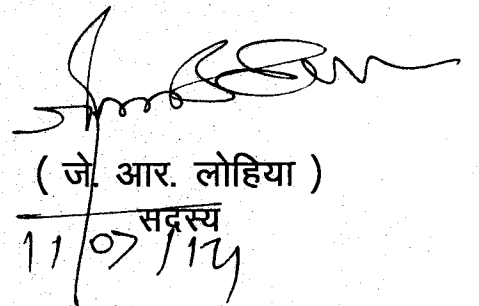 ( जे. आर. लोहिया )
सदस्य
11/07/14